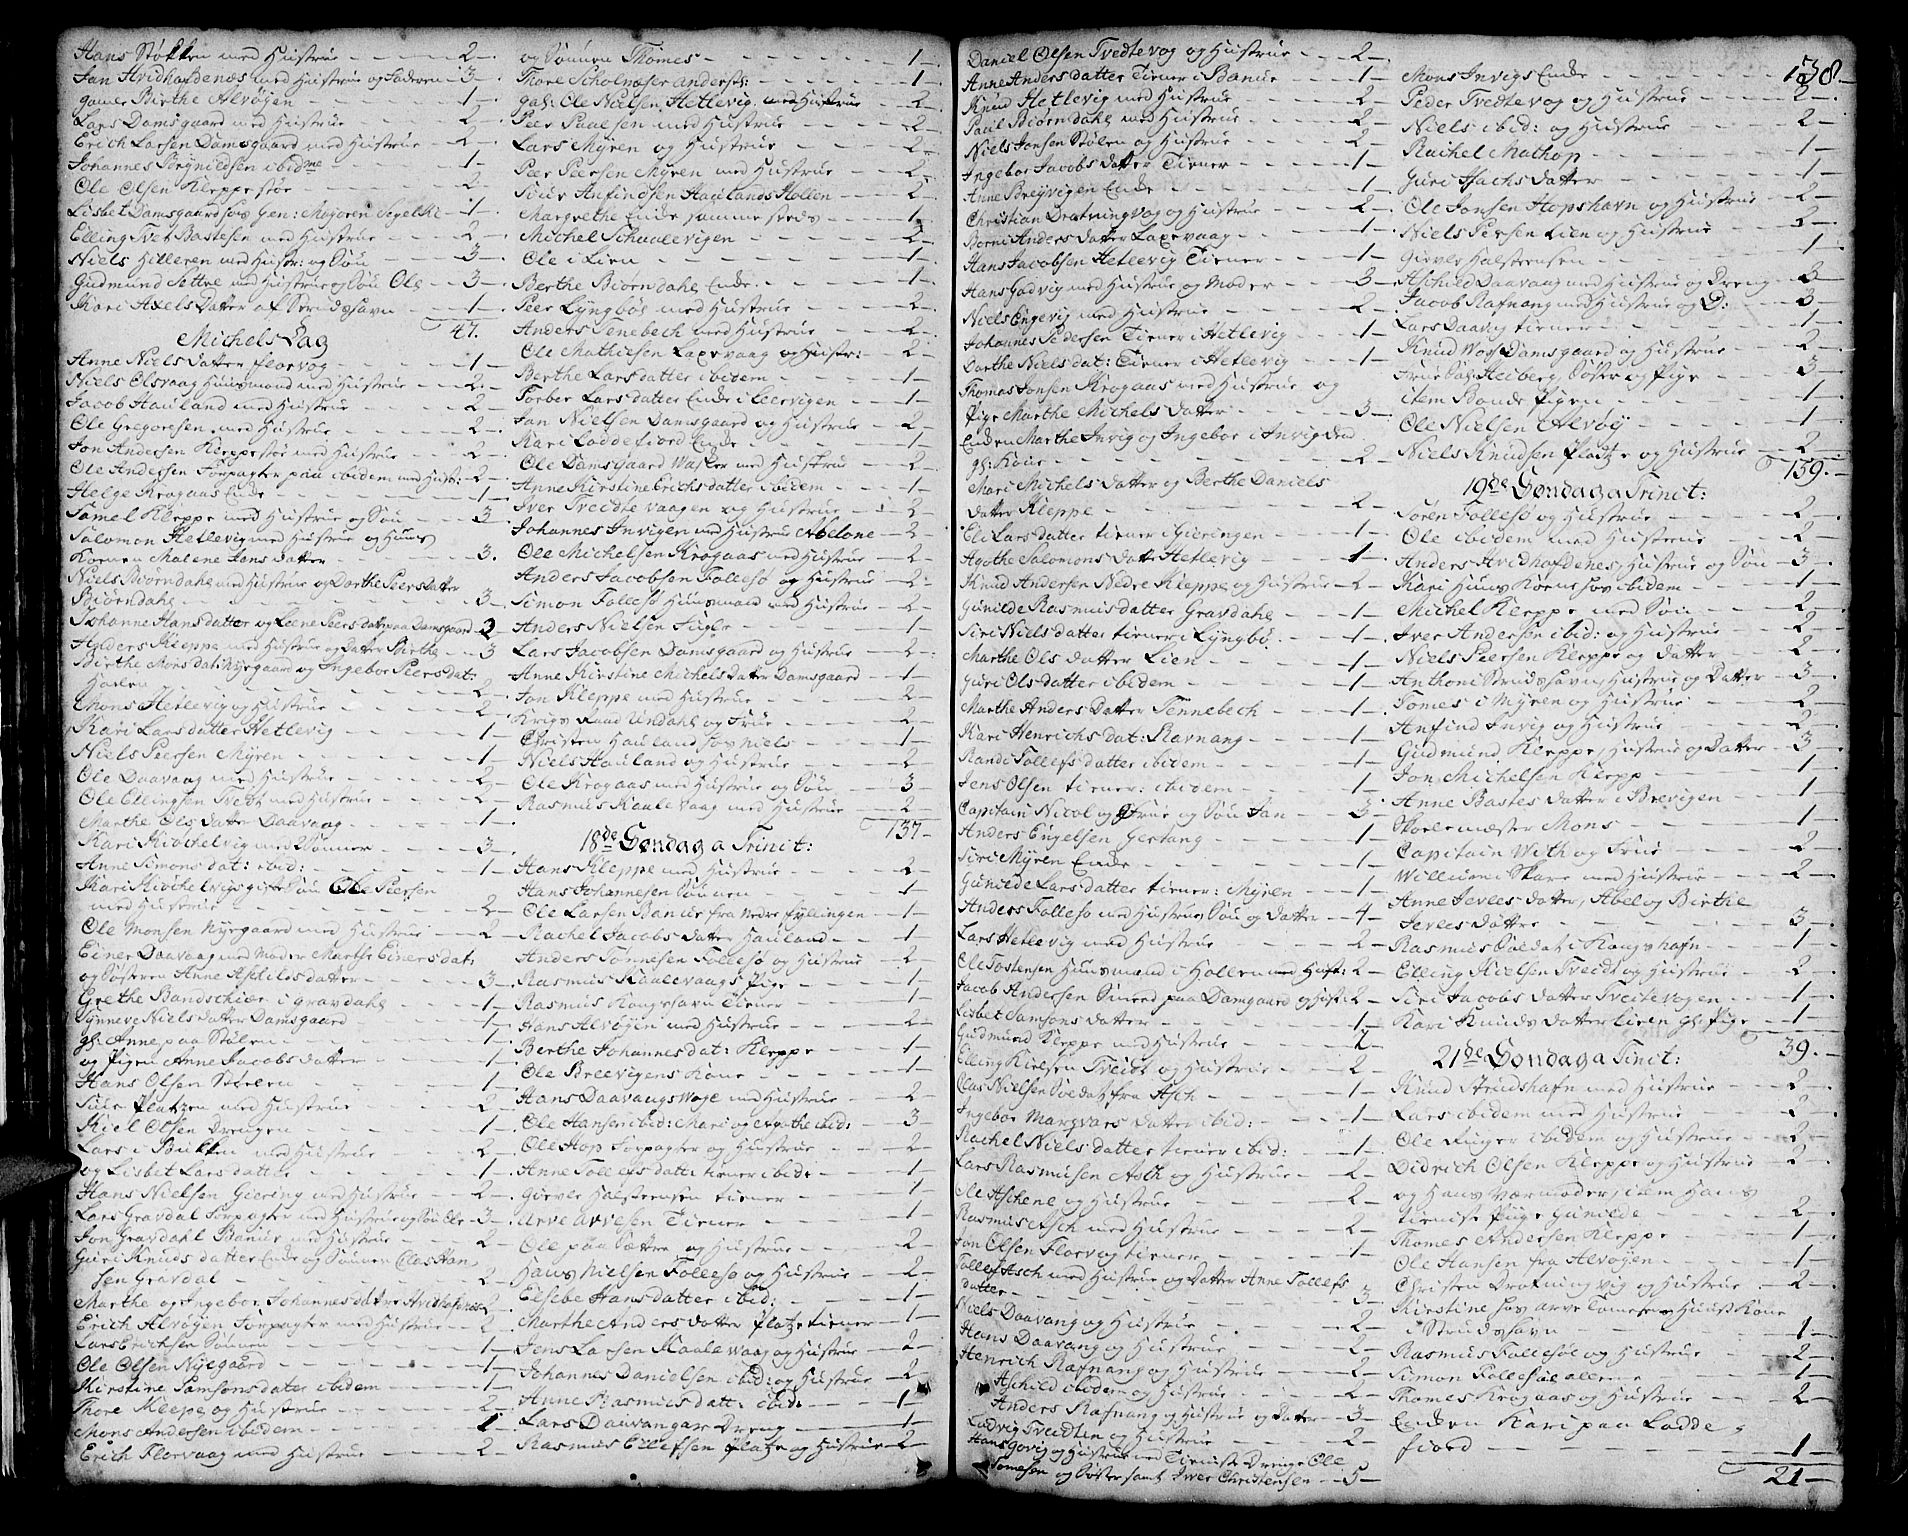 Hans Støkken med Hustrue - - - 2 -
Jan Hvidhofdenæs med Hustrue og Faderen - 3 -
gamle Birthe Alvøyen - - - 1 -
Lars Damsgaard med Hustrue - - 2 -
Erich Larsen Damsgaard med Hustrue - 2 -
Johannes ibidme - 1 -
Ole Olsen Kleppestøe - - 2 -
Lisbet Damsgaard hos Gen: Majoren Segelke - 1 -
Elling Tvet Bastesen med Hustrue - 2 -
Niels Hilleren med Hustr: og Søn - 3 -
Gudmund Settre med Hustrue og Søn Ole - 3 -
Kari Axels Datter af Strudshavn - 1 -
47.
Michels Dag
Anne Niels Datter Florvog - - 1 -
Niels Olsvaag Huusmand med Hustrue - 2 -
Jacob Hauland med Hustrue - - 2 -
Ole Gregoresen med Hustrue - - 2 -
Jon Andersen Kleppestøe med Hustrue - 2 -
Ole Andersen Forpagter paa ibidem med Hust: - 2 -
Helge Krogaas Enke - - 1 -
Samel Kleppe med Hustrue og Søn - 3
Salomon Hetlevig med Hustrue og Huus
Konen Malene Jens Datter - - 3.
Niels Biørndahl med Hustrue og Dorthe Peers Datter
Biørndahl - - - 3 -
Johanne Hans datter og Leene Peers Datr paa Damsgaard - 2
Anders Kleppe med Hustrue og Datter Birthe - 3
Birthe Mons dat: Nyegaard og Ingebor Peersdat:
- - 2 -
Mons Hetlevig og Hustrue - - 2 -
Kari Lars datter Hetlevig - - 1 -
Niels Peersen Myren - - 1 -
Ole Daavaag med Hustrue - - 2 -
Ole Ellingsen Tvedt med Hustrue - 2 -
Marthe Ols datter Daavaag - - 1 -
Kari Kiøkelvig med Sønner - - 3 -
Anne Simons dat: ibid: - - 1 -
Kari Kiøkelvigs gifte Søn Ole Peersen
med Hustrue - - 2 -
Ole Monsen Nyegaard med Hustrue - 2 -
Einer Daavaag med Moder Marthe Einersdat:
og Søsteren Anne Aschilsdatter - 3 -
Grethe Bandschier i Gravdahl - 1 -
Synneve Niels datter Damsgaard - 1 -
gl: Anne paa Stølen - - 1 -
og Pigen Anne Jacobs datter - - 1 -
Hans Olsen Stølen - - 1 -
Siur Platzen med Hustrue - - 2 -
Kiel Olsen Drengen - - 1 -
Lars i Bukken med Hustrue - - 2 -
og Lisbet Lars datter - - 1 -
Hans Nielsen Giering med Hustrue - 2 -
Lars Gravdal Forpagter med Hustrue og Søn Ole - 3 -
Jon Gravdahl Banur med Hustrue - 2 -
Guri Knuds datter Enke og Sønnen Clas Han
sen Gravdal - - 2 -
Marthe og Ingebor Johannes datre Hvidhofdnæs - 2 -
Erich Alvøyen Forpagter med Hustrue - 2 -
Lars Erichsen Sønnen - - 1 -
Ole Olsen Nyegaard - - 1 -
Kirstine Samsons datr ibidem - - 1 -
Thore Kleppe og Hustrue - - 2 -
Mons Andersen ibidem - - 1 -
Erich Florvaag med Hustrue - - 2 -
og Sønnen Thomes - - - 1 -
Thore Scholmæster Anders: - - 1 -
gal: Ole Nielsen Hetlevig med Hustrue - 2 -
Peer Paalsen med Hustrue - - 2 -
Lars Myren og Hustrue - - 2 -
Peer Peersen Myren med Hustrue - 2 -
Siur Anfindsen Haulands Hollen - 2 -
Margrethe Enke sammesteds - - 1 -
Michel Schaalevigen - - 2 -
Ole i Lien - - 1 -
Berthe Biørndahl Enke - - 1 -
Peer Lyngbøe med Hustrue - - 2 -
Anders Tenebech med Hustrue - 2 -
Ole Mathiesen Laxevaag og Hustr: - 2 -
Berthe Lars datter ibidem - - 1 -
Torber Lars datter Enke i Leervigen - 1 -
Jan Nielsen Damsgaard og Hustrue - 2 -
Kari Loddefiord Enke - - 1 -
Ole Damsgaard Vasker med Hustrue - 2 -
Anne Kirstine Erichs datter ibidem - 1 -
Iver Tvedtevaagen og Hustrue - 2 -
Johannes Invigen med Hustrue Abelone - 2 -
Ole Michelsen Krogaas med Hustrue - 2 -
Anders Jacobsen Follesø og Hustrue - 2 -
Simon Follesø Huusmand med Hustrue - 2 -
Anders Nielsen Fugle - - 1 -
Lars Jacobsen Damsgaard og Hustrue - 2 -
Anne Kirstine Michels Datter Damsgaard - 1 -
Jon Kleppe med Hustrue - - 2 -
Krigs Raad Undahl og Frue - - 2 -
Christen Hauland hos Niels - - 1 -
Niels Hauland og Hustrue - - 2 -
Ole Krogaas med Hustrue og Søn - 3 -
Rasmus Kaalevaag med Hustrue - 2 -
137 -
18de Søndag a Trinit:
Hans Kleppe med Hustrue - - 2
Hans Johannesen Sønnen - - 1
Ole Larsen Banur fra Nedre Fyllingen - 1 -
Rachel Jacobs datter Hauland - - 1 -
Anders Tønnesen Follesø og Hustrue - 2 -
Rasmus Kaalevaags Pige - - 1 -
Rasmus Kongshavn Tiener - - 1 -
Hans Alvøyen med Hustrue - - 2 -
Berthe Johannes dat: Kleppe - - 1 -
Ole Breevigens Kone - - 1 -
Hans Daavangs Voje med Hustrue - 2 -
Ole Hansen ibid: Mari og Agathe ibid: - 3 -
Ole Hop Forpagter og Hustrue - 2 -
Anne Tollefs datt: tiener ibid: - 1 -
Giever Halsteensen tiener - - 1 -
Arve Arvesen Tiener - - 1 -
Ole paa Sættre og Hustrue - - 2 -
Hans Nielsen Follesø og Hustrue - 2 -
Elsebe Hansdatter ibid: - - 1 -
Marthe Anders datter Platze tiener - 1 -
Jens Larsen Kaalevaag og Hustrue - 2 -
Johannes Danielsen ibid: og Hustrue - 2 -
Anne Rasmusdatt: ibid: - - 1 -
Lars Daavangar Dreng - - 1 -
Rasmus Ellefsen Platze og Hustrue - 2 -
Daniel Olsen Tvedtevog og Hustrue - 2 -
Anne Anders datter Tiener i Banur - 1 -
Knud Hetlevig med Hustrue - - 2 -
Paul Biørndahl med Hustrue - - 2 -
Niels Jansen Stølen og Hustrue - 2 -
Ingebor Jacobs datter Tiener - - 1 -
Anne Breyvigen Enke - - 1 -
Christian Dratningvog og Hustrue - 2 -
Borni Anders datter Laxevaag - - 1 -
Hans Jacobsen Hetlevig Tiener - 1 -
Hans Godvig med Hustrue og Moder - 3 -
Niels Engevig med Hustrue - - 2 -
Johannes Pedersen Tiener i Hetlevig - 1 -
Dorthe Niels dat: Tiener i Hetlevig - 1 -
Thomas Jonsen Krogaas med Hustrue og
Pige Marthe Michels datter - - 3 -
Enken Marthe Invig og Ingebor i Invig den
gl: Kone - - 2 -
Mari Michels datter og Berthe Daniels
datter Kleppe - - 2 -
Eli Lars datter tiener i Gieringen - 1 -
Agathe Salomons datter Hetlevig - 1 -
Knud Andersen Nedre Kleppe og Hustrue - 2 -
Gunilde Rasmusdatter Gravdahl - 1 -
Siri Niels datter tiener i Lyngbø - 1 -
Marthe Ols datter Lien - - 1 -
Guri Ols datter ibidem - - 1 -
Marthe Anders Datter Tennebech - 1 -
Kari Henrichs dat: Ravnang - - 1 -
Randi Tollefs datter ibidem - - 1 -
Jens Olsen tiener: ibidem - - 1 -
Capitain Nicol og Frue og Søn Jan - 3 -
Anders Engelsen Gertang - - 1 -
Siri Myren Enke - - 1 -
Gunilde Lars datter tiener: Myren - 1 -
Anders Follesø med Hustrue, Søn og datter - 4 -
Lars Hetlevig med Hustrue - - 2 -
Ole Tostensen Huusmand i Hollen med Hust: 2 -
Jacob Andersen Smeed paa Damgaard og Hust: 2 -
Lisbet Samsons datter - - 1 -
Gudmund Kleppe med Hustrue - 2 -
Elling Kielsen Tvedt og Hustrue - 2 -
Clas Nielsen Soldat fra Asch - 1 -
Ingebor Margvars datter ibid: - 1 -
Rachel Niels datter tiener ibid: - 1 -
Lars Rasmusen Asch og Hustrue - 2 -
Ole Aschene og Hustrue - - 2 -
Rasmus Asch med Hustrue - - 2 -
Jon Olsen Florvog tiener - - 1 -
Tollef Asch med Hustrue og Datter Anne Tollefs
datter - - 3 -
Niels Daavang og Hustrue - - 2 -
Hans Daavang og Hustrue - - 2 -
Henrich Rafnang og Hustrue - - 2 -
Aschild ibidem og Hustrue - - 2 -
Anders Rafnang og Hustrue og Datter - 3 -
Ludvig Tvedten og Hustrue - - 2 -
Hans Govig og Hustrue med Tieniste Drenge Ole
Tomesen og Søster samt Iver Christensen - 5 -
138 -
Mons Invigs Enke - - - 1 -
Peder Tvedtevog og Hustrue - - 2 -
Niels ibid: og Hustrue - - 2 -
Rachel Mathop - - 1 -
Guri Isachs datter - - 1 -
Ole Jonsen Hopshavn og Hustrue - 2 -
Niels Peersen Lien og Hustrue - 2 -
Giever Halsteensen - - 1 -
Aschild Daavaag med Hustrue og Dreng - 3
Jacob Rafnang med Hustrue og D: - 3 -
Lars Daavig tiener - - 1 -
Knud Vos Damsgaard og Hustrue - 2
Frue Sal: Heiberg, Søster og Pige - 3 -
item Bonde Pigen - - 1 -
Ole Nielsen Alvøy - - 1 -
Niels Knudsen Platze og Hustrue - 2 -
139. -
19de Søndag a Trinit:
Søren Follesø og Hustrue - - 2 -
Ole ibidem med Hustrue - - 2 -
Anders Hvidhofdenes, Hustrue og Søn - 3 -
Kari Huus Kone hos ibidem - - 1 -
Michel Kleppe med Søn - - 2 -
Iver Andersen ibid: og Hustrue - 2 -
Niels Peersen Kleppe og Datter - 2 -
Anthoni Strudshavn, Hustrue og Datter - 3 -
Tomes i Myren og Hustrue - - 2 -
Anfind Invig og Hustrue - - 2 -
Gudmund Kleppe, Hustrue og Datter - 3 -
Jon Michelsen Klepp - - 1 -
Anne Bastes datter i Brevigen - 1 -
Skolemæster Mons - - 1 -
Capitain With og Frue - - 2 -
Willum i Skare med Hustrue - 2 -
Anne Jerles datter, Abel og Birthe
Jerles datter - - 3 -
Rasmus Soldat i Kongshafn - - 1 -
Elling Kielsen Tvedt og Hustrue - 2 -
Siri Jacobs datter Tveitevogen - 1 -
Kari Knuds datter Lien gl: Pige - 1 -
39. -
21de Søndag a Tinit:
Knud Strudshafn med Hustrue - 2 -
Lars ibidem med Hustrue - - 2 -
Ole Ruger ibidem og Hustrue - 2 -
Didrich Olsen Kleppe og Hustrue - 2 -
og Hans Værmoder, item Hans
tieniste Piige Gunilde - - 2 -
Thomes Andersen Kleppe - - 1 -
Ole Hansen fra Alvøyen - - 1 -
Christen Drotningvig og Hustrue - 2 -
Kirstine hos Arve Tomesen Huus Kone
i Strudshavn - - 1 -
Rasmus Follesøe og Hustrue - 2 -
Simon Follesøe allene - - 1 -
Thomes Krogaas og Hustrue - 2 -
Enken Kari paa Lodde,
fiord - - 1 -
21 -